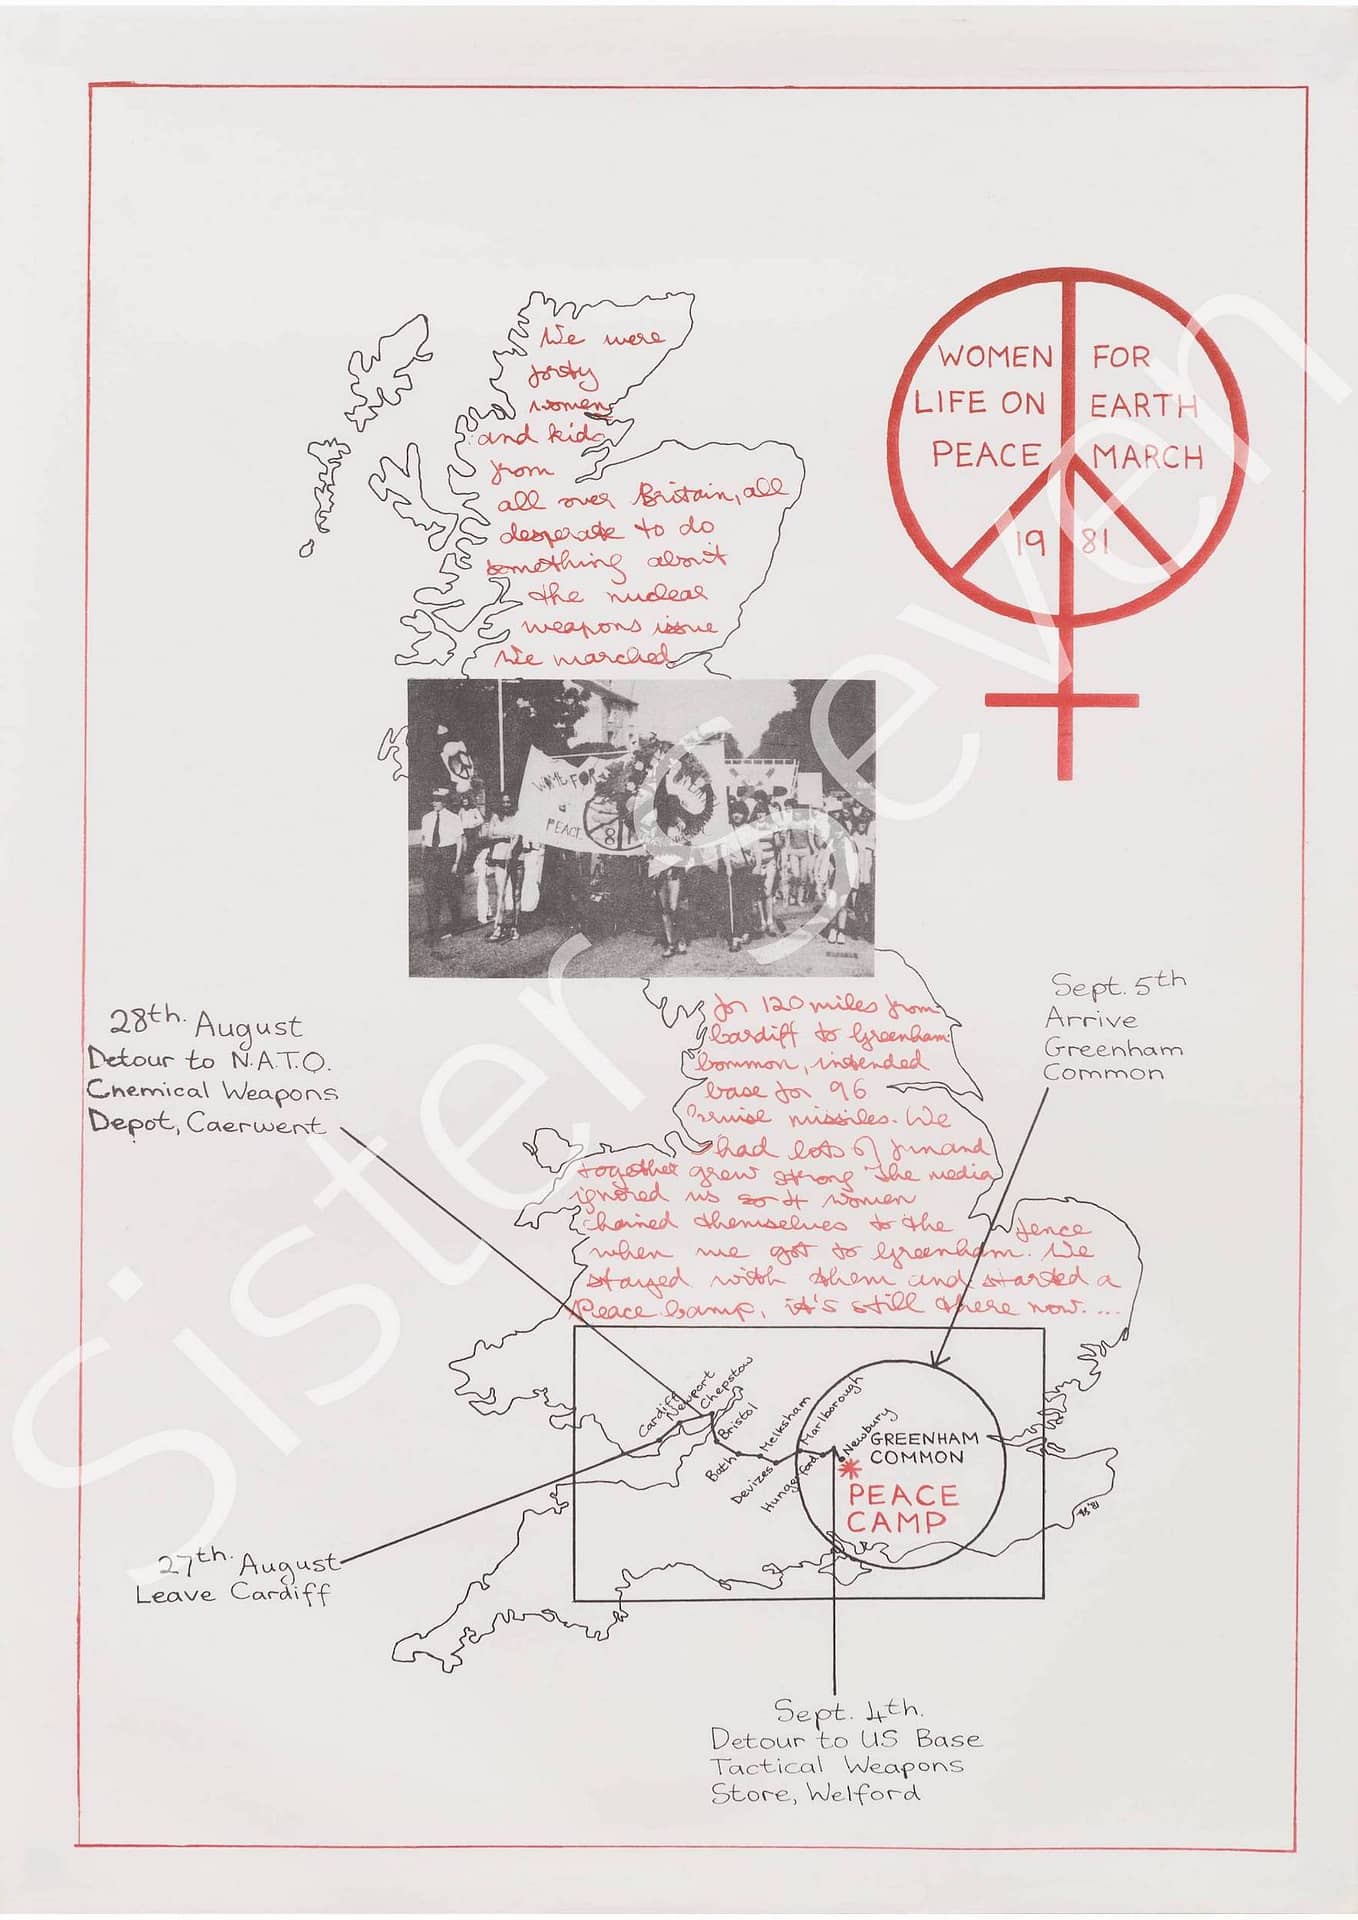 We were
forty
women
and kids
from
all over Britain, all
desperate to do
something about
the nuclear
weapons issue
We marched
WOMEN FOR
LIFE ON EARTH
PEACE MARCH
1981
PEACE 81
for 120 miles from
Cardiff to Greenham
Common, intended
base for 96
Cruise missiles. We
had lots of fun and
together grew strong The media
ignored us so 4 women
chained themselves to the fence
when we got to Greenham. We
stayed with them and started a
Peace Camp, it's still there now....
28th. August
Detour to N.A.T.O.
Chemical Weapons
Depot, Caerwent
Sept. 5th
Arrive
Greenham
Common
Cardiff
Newport
Chepstow
Bristol
Bath
Melksham
Devizes
Marlborough
Hungerford
Newbury
GREENHAM
COMMON
PEACE
CAMP
27th. August
Leave Cardiff
Sept. 4th.
Detour to US Base
Tactical Weapons
Store, Welford
Sister Seven